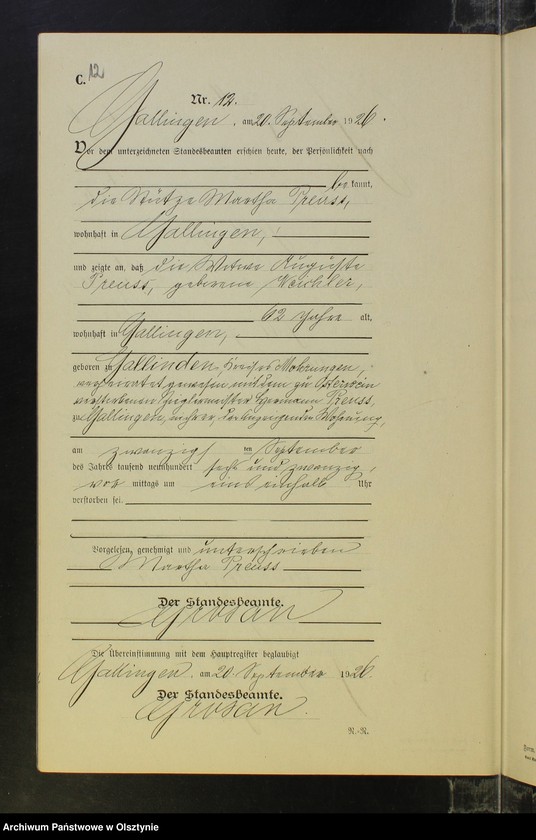 C. 12
Nr. 12.
Gallingen, am 20. September 1926.
Vor dem unterzeichneten Standesbeamten erschien heute, der Persönlichkeit nach
bekannt,
die Stütze Martha Preuss,
wohnhaft in Gallingen,
und zeigte an, daß die Witwe Auguste
Preuss, geborene
62 Jahre alt,
wohnhaft in Gallingen,
geboren zu Gallinden, Kreises Mohrungen,
verheiratet gewesen mit dem zu Osterwein
verstorbenen Zieglermeister Hermann Preuss,
zu Gallingen, in ihrer, der Anzeigenden Wohnung,
am zwanzigsten September
des Jahres tausend neunhundert sechs und zwanzig,
vor mittags um ein einhalb Uhr
verstorben sei.
Vorgelesen, genehmigt und unterschrieben
Martha Preuss
Der Standesbeamte.
Grosan
Die Übereinstimmung mit dem Hauptregister beglaubigt
Gallingen, am 20. September 1926.
Der Standesbeamte.
Grosan.
R.-R.
Archiwum Państwowe w Olsztynie